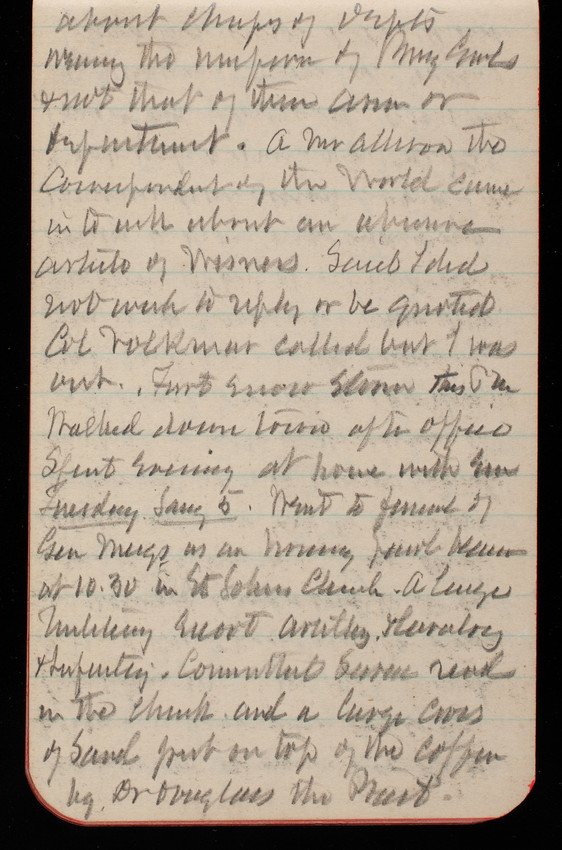 about chiefs of Depts
being the support of Brig Genls
& not that of their arm or
department. A Mr Allison the
Correspondent of the World came
in to ask about an abusive
article of Visners. Said I did
not wish to reply or be quoted
Col Volkmar called but I was
out. First snow storm this P M
Walked down town after office
Spent evening at home with Em
Tuesday Jany 5. Went to funeral of
Gen Meigs as an honorary pall bearer
at 10.30 in St Johns Church. A large
Military Escort Artillery, & Cavalry
& Infantry. Committal Service read
in the church and a large cross
of Sand put on top of the coffin
by Dr Douglass the Priest.